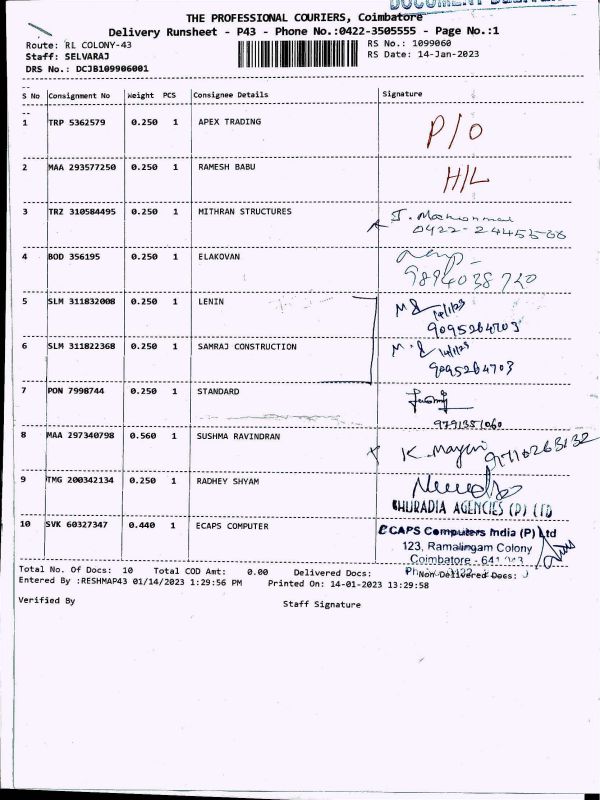 DOCUMENT
THE PROFESSIONAL COURIERS, Coimbatore
Delivery Runsheet - P43 - Phone No.:0422-3505555 - Page No.:1
Route: RL COLONY-43
RS No.: 1099060
Staff: SELVARAJ
RS Date: 14-Jan-2023
DRS No.: DCJB109906001
S No Consignment No Weight PCS Consignee Details Signature
1 TRP 5362579 0.250 1 APEX TRADING P/O
2 MAA 293577250 0.250 1 RAMESH BABU H/L
3 TRZ 310584495 0.250 1 MITHRAN STRUCTURES
4 BOD 356195 0.250 1 ELAKOVAN
9894038720
5 SLM 311832008 0.250 1 LENIN M
14/1/23
9095264703
6 SLM 311822368 0.250 1 SAMRAJ CONSTRUCTION M
14/1/23
9095264703
7 PON 7998744 0.250 1 STANDARD
9791351060
8 MAA 297340798 0.560 1 SUSHMA RAVINDRAN K. Mayuri 9710263132
9 TMG 200342134 0.250 1 RADHEY SHYAM
HURADIA AGENCIES (P) LTD
10 SVK 60327347 0.440 1 ECAPS COMPUTER ECAPS Computers India (P) Ltd
123, Ramalingam Colony
Coimbatore - 641
Total No. Of Docs: 10 Total COD Amt: 0.00 Delivered Docs: Non Delivered Docs:
Entered By :RESHMAP43 01/14/2023 1:29:56 PM Printed On: 14-01-2023 13:29:58
Verified By Staff Signature